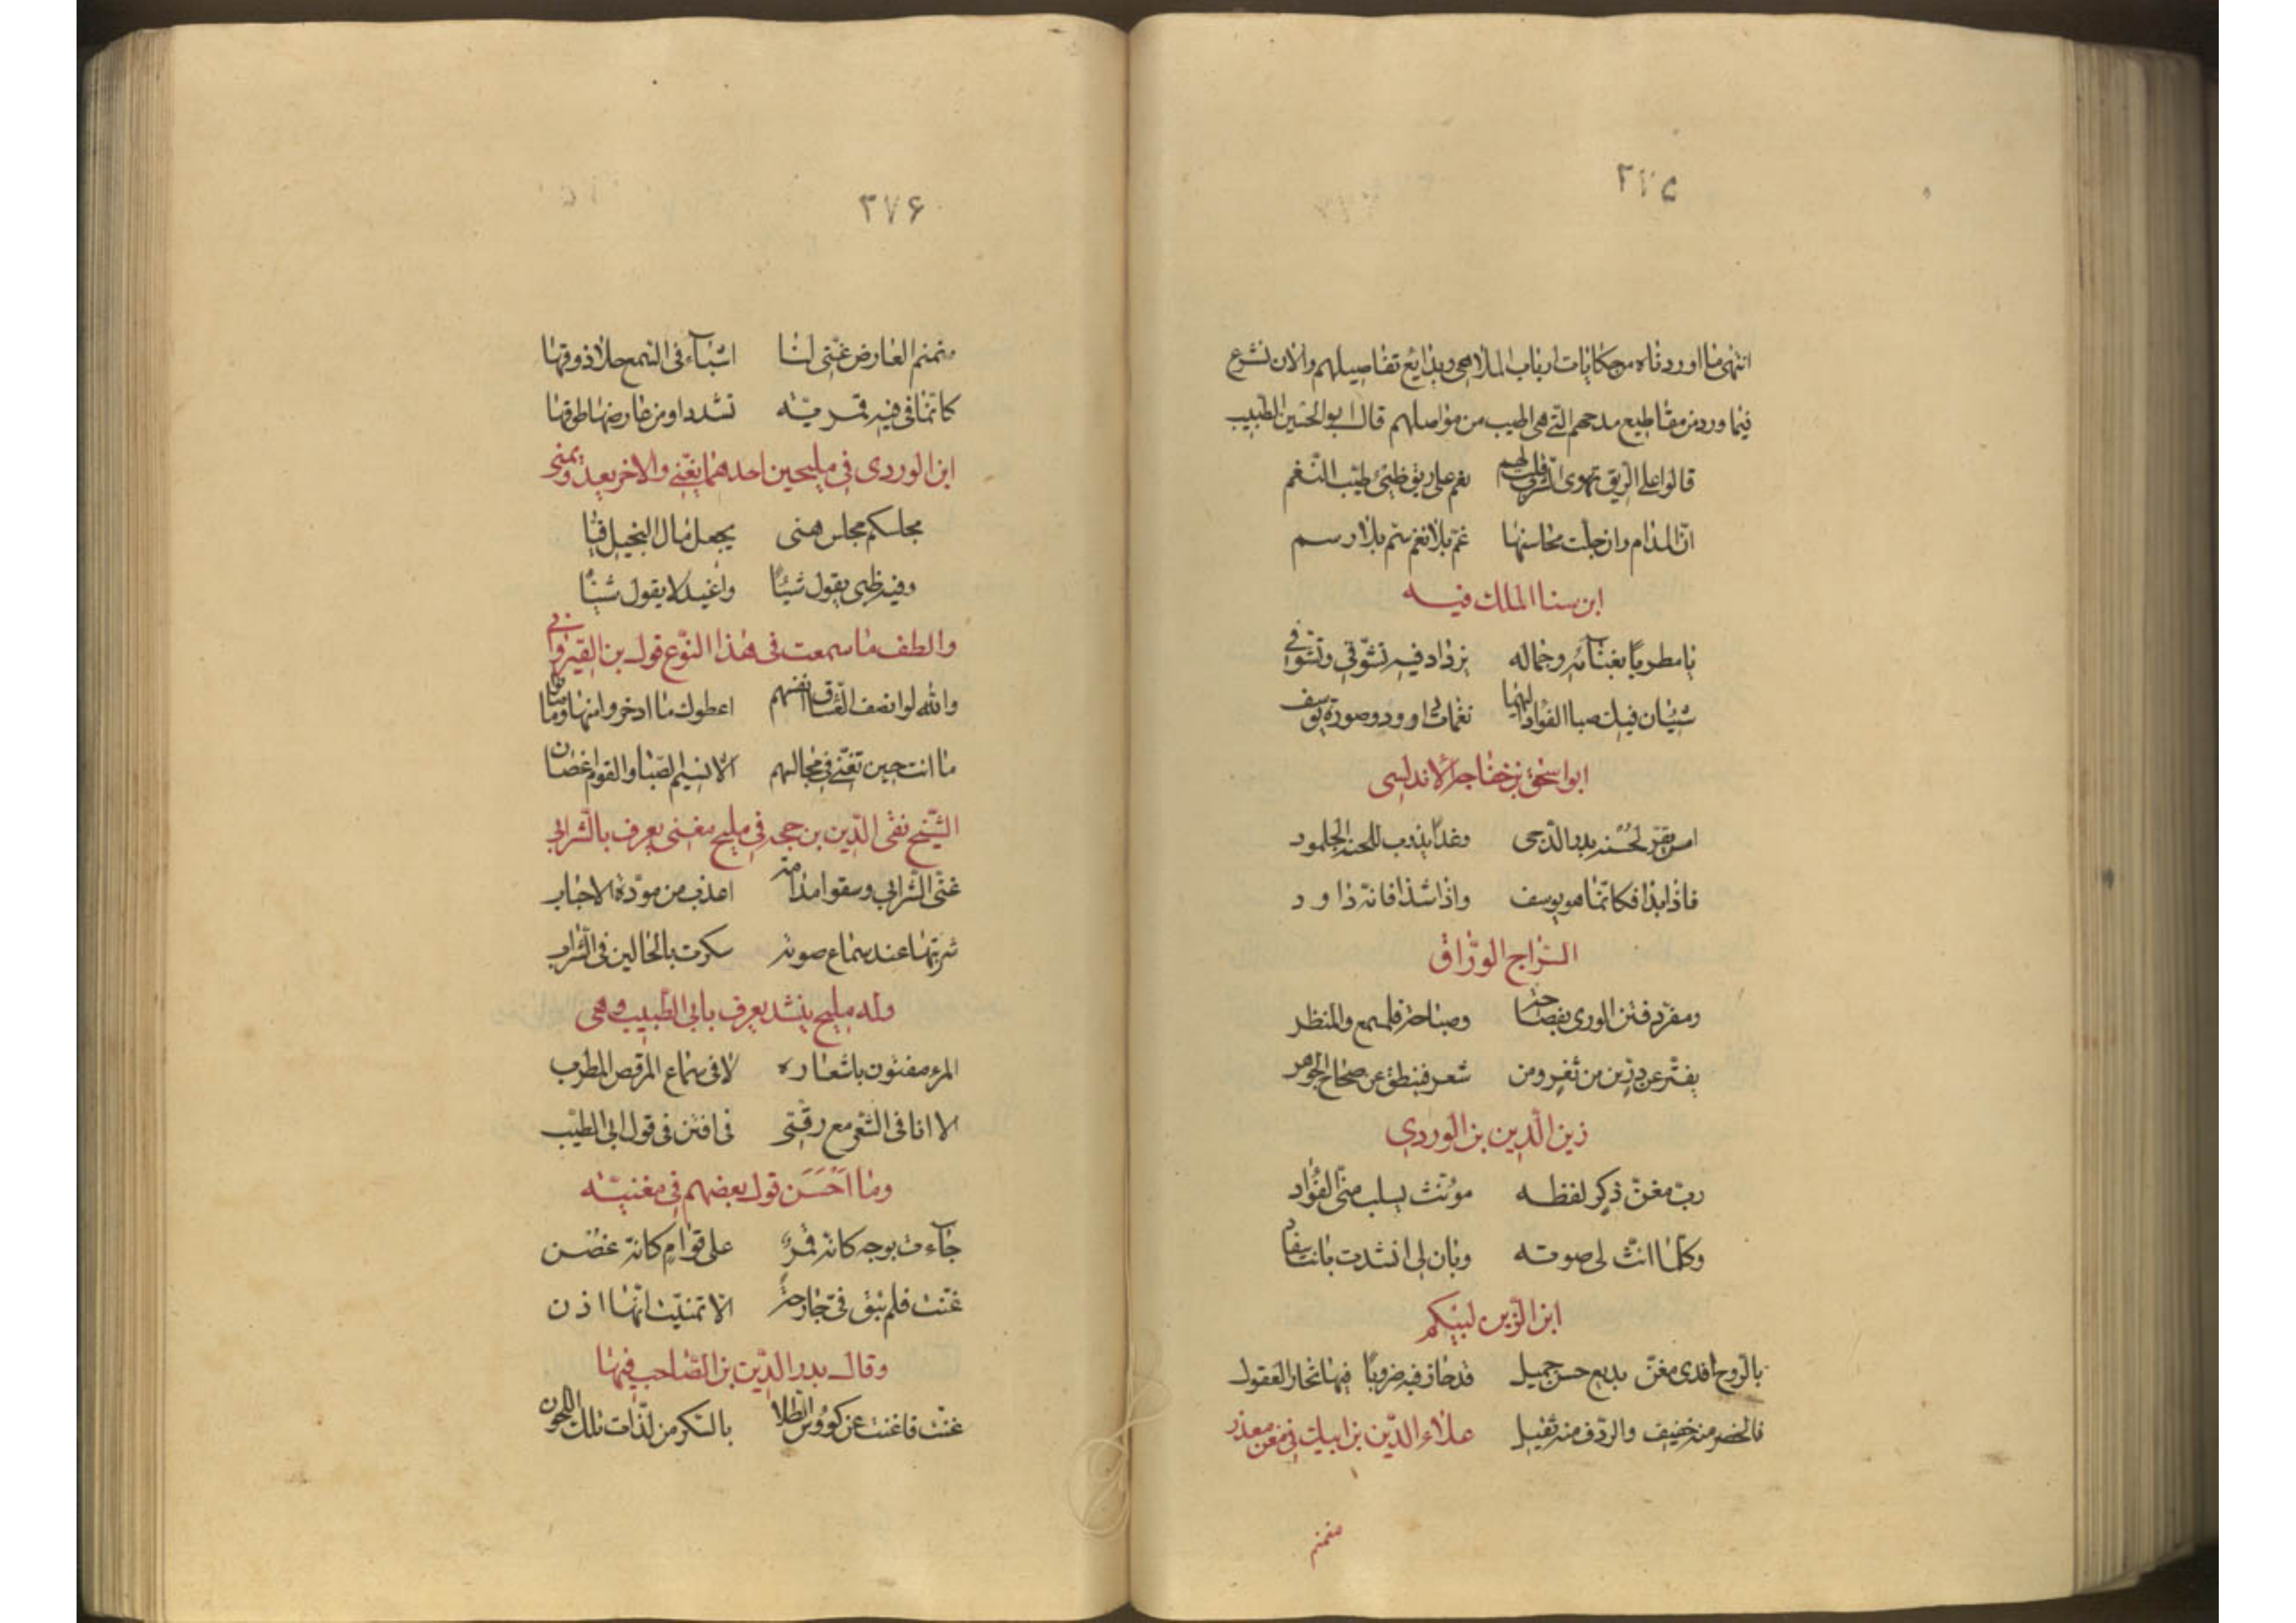 ٢٧٥
انتهى ما اوردناه من حكايات ارباب الملاهي وبدايع تفاصيلهم والان نشرع
فيما ورد من مقاطيع مدحهم التي هي اطيب من مواصلهم قال ابو الحسين الطبيب
قالوا على الريق تهوى الشرب قلت لهم نعم على ريق ظبي طيب النغم
ان المدام وان جلت محاسنها غم بلا نغم سم بلا دسم
ابن سنا الملك فيه
يا مطربا بغنآئه وجماله يزداد فيه تشوقي وتشوفي
شيئان فيك صبا الفؤاد اليهما نغمات داوود وصورة يوسف
ابو اسحق بن خفاجه الاندلسى
لحسنه بدر الدجى وغدا يذوب للحنه الجلمود
فاذا بدا فكانما هو يوسف واذا شدا فانه داود
السراج الوراق
ومغرد فتن الورى بفصاحة وصباحة فلمسمع والمنظر
يفتر عن درين من ثغر ومن شعر فينطق عن صحاح الجوهر
زين الدين بن الوردي
رب مغن ذكر لفظه مؤنث يسلب منى الفؤاد
وكلما انث لى صوته وبان لى انشدت بانت سعاد
ابن الزين لبيكم
بالروح افدى مغن بديع حسن جميل قد حاز فيه ضروبا فيها تحار العقول
فالخصر منه خفيف والردف منه ثقيل علاء الدين بن ايبك في مغن معذر
منمنم
٢٧۶
منمنم العارض غنى لنا اشيآء فى السمع حلا ذوقها
كانما فى فيه قمريه تشدو او من عارضها طوقها
ابن الوردى فى مليحين احدهما يغني والاخر
مجلسكم مجلس هنى يجعل مال البخيل فيا
وفيه ظبى يقول شيئا واغيد لا يقول شيئا
والطف ما سمعت فى هذا النوع قول بن القيروانى
والله لو انصف العشاق انفسهم اعطوك ما ادخروا منها وما صانوا
ما انت حين تغني في مجالسهم الا نسيم الصبا والقوم اغصان
الشيخ تقى الدين بن حجه فى مليح مغنى يعرف بالشرابى
غنى الشرابى وسقوا مدامة اعذب من مودة الاحباب
شربتها عند سماع صوته سكرت بالحالين فى الشراب
وله مليح ينشد يعرف بابى الطيب وهى
المرء مفتون باشعاره لا فى سماع المرقص المطرب
لا انا فى الشعر مع رقتى فى افتن فى قول ابى الطيب
وما احسن قول بعضهم فى مغنيه
جآءت بوجه كانه قمر على قوام كانه غصن
غنت فلم تبق فى جارحة الا تمنيت انها اذن
وقال بدر الدين بن الصاحب فيها
غنت فاغنت عن كووس الطلا بالسكر من لذات تلك اللحون